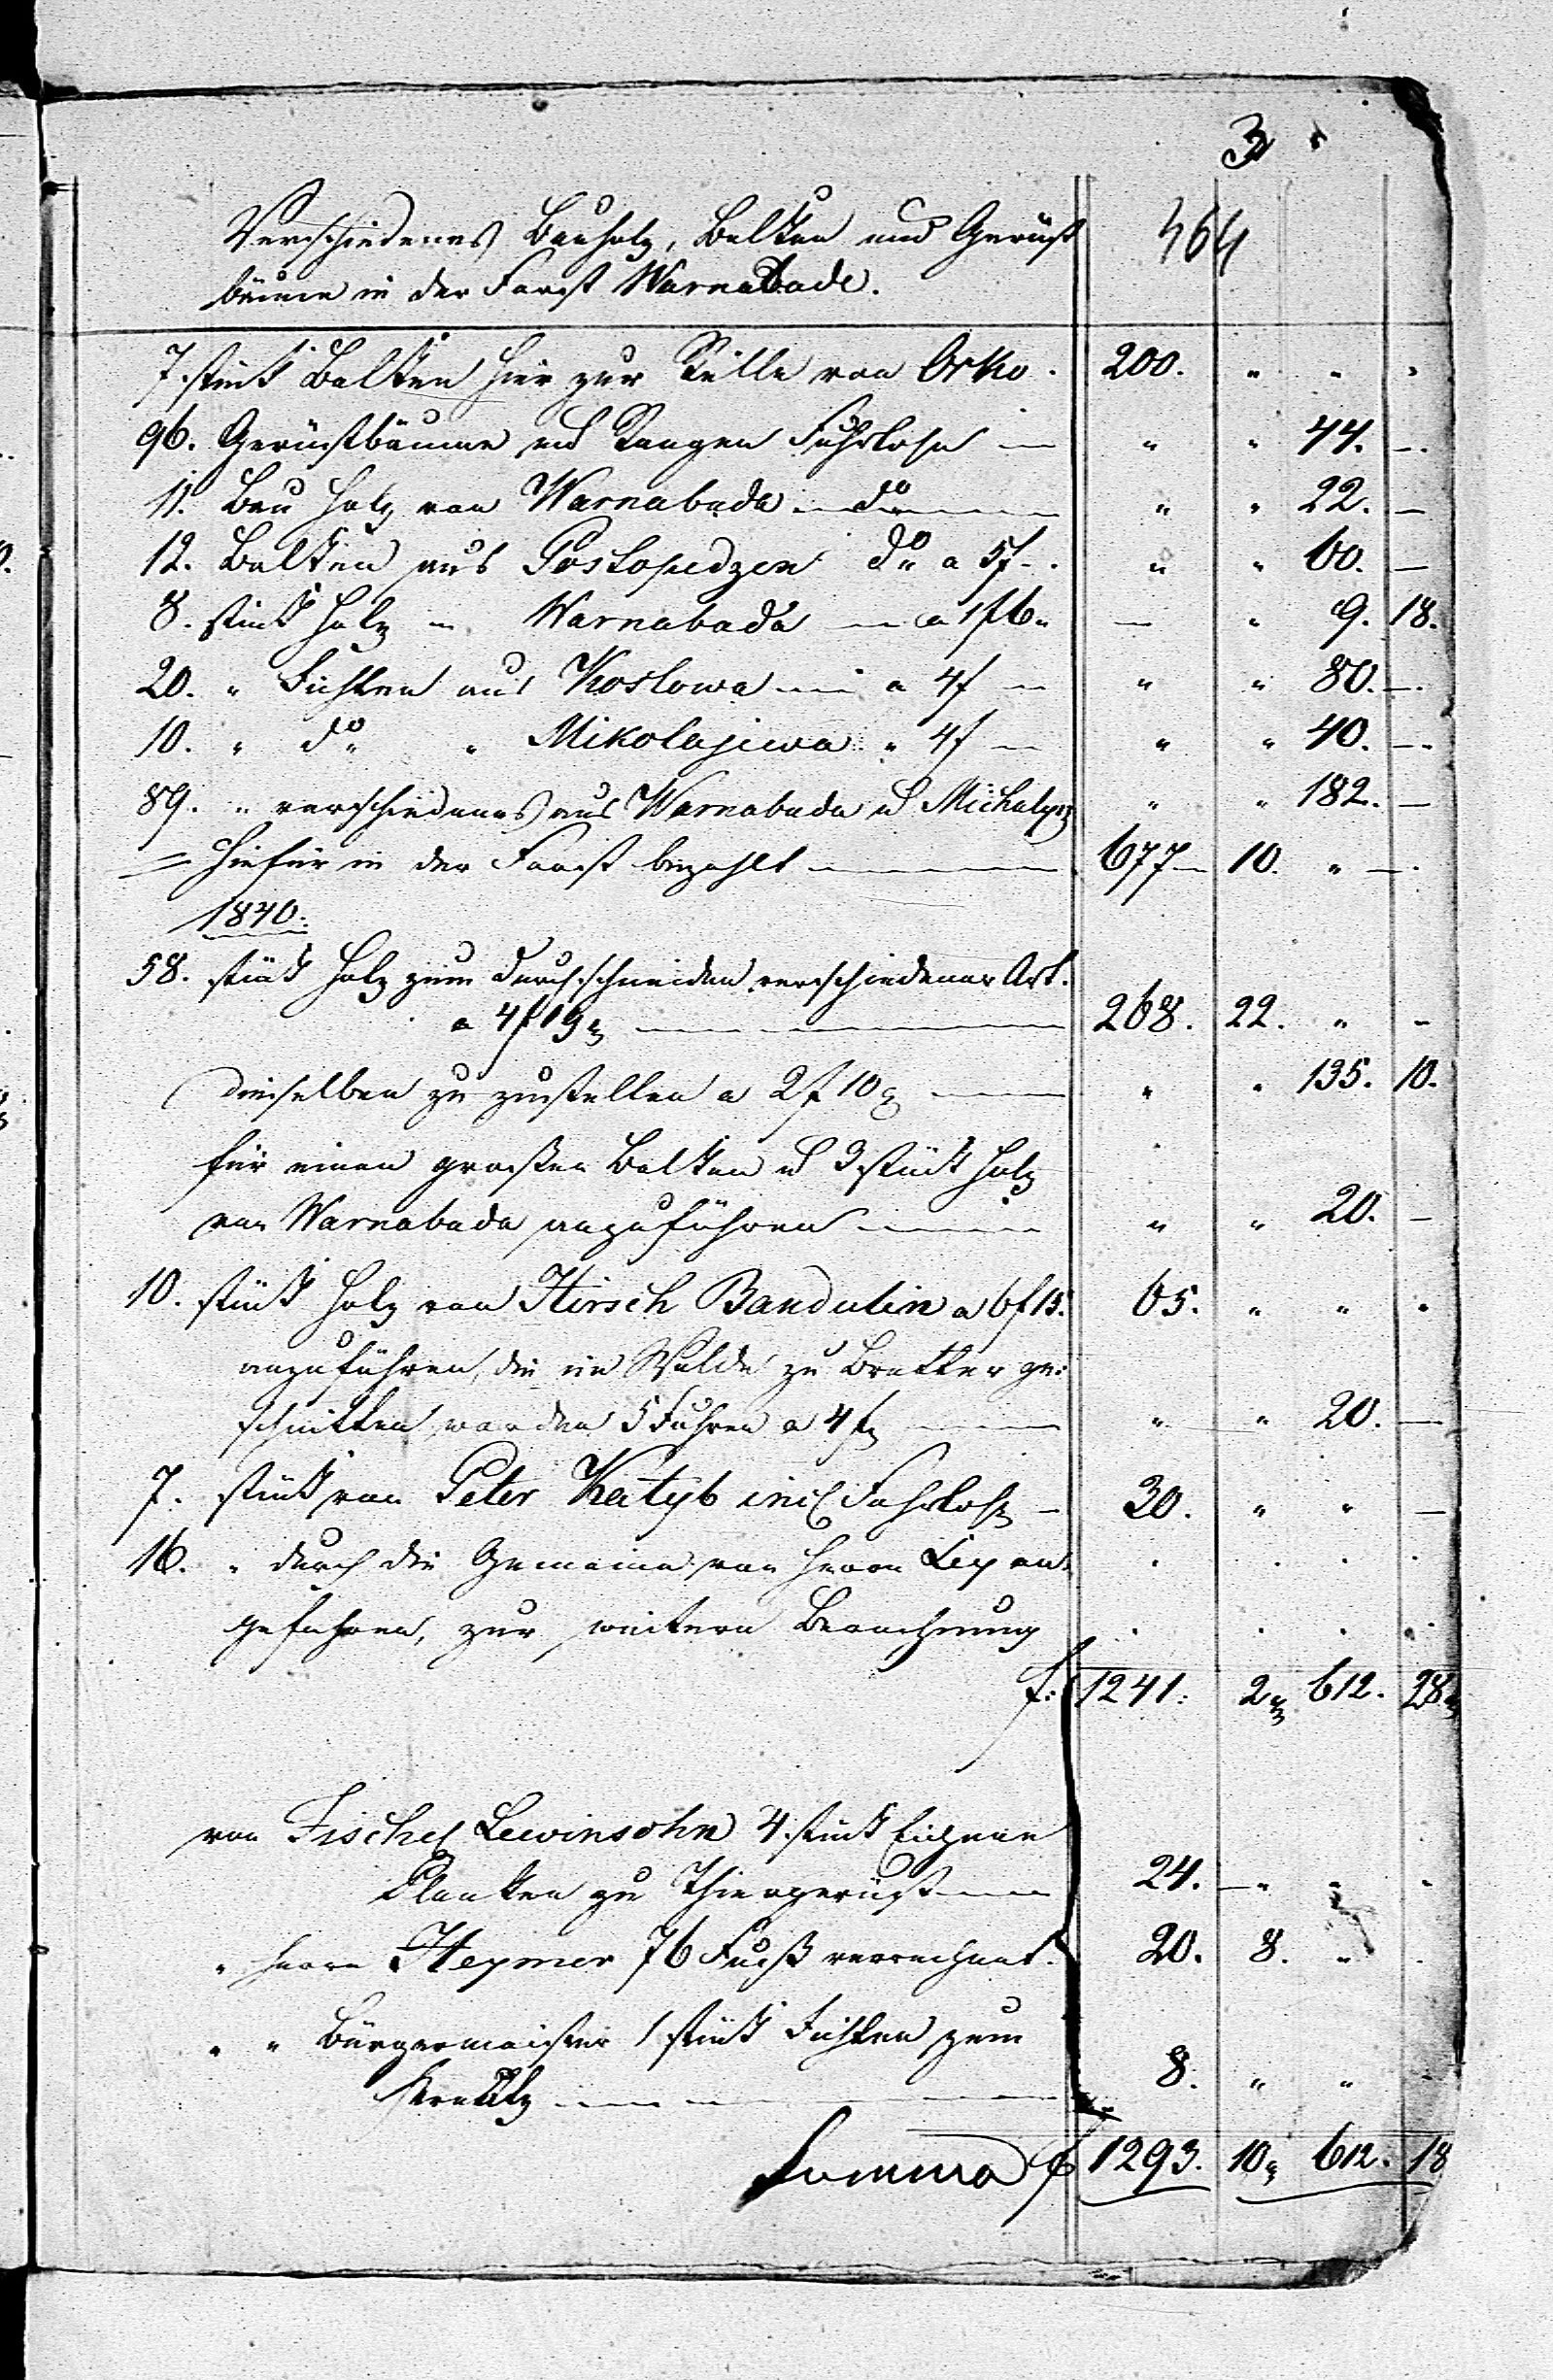 3
364
Verschiedenes Bauholz, Balken und Gerüst
bäume in der Forst Warnabade.
7. stück Balken hier zur Stelle von Orko. 200. " " "
96. Gerüstbäume und Stangen Fuhrlohn — " " 44. —
11. Bau Holz von Warnabuda — do — " " 22. —
12. Balken aus Poskopedzen do a 5f — " " 60. —
8. stück Holz — Warnabuda — a 1f 6 " — " 9. 18.
20. " Fichten aus Koslowa — a 4f — " " 80. —
10. " do " Mikolajewa " 4f — " " 40. —
89. " verschiedenes aus Warnabuda u Michalysz " " 182. —
hiefür in der Forst bezahlt — 677 — 10. " —
1840.
58. stück Holz zum durchschneiden verschiedener Art.
a 4f 19 g — 268. 22. " —
dieselben zu zustellen a 2f 10 g — " " 135. 10.
für einen großen Balken u 3 stück Holz
von Warnabuda anzuführen — " " 20. —
10. stück Holz von Hirsch Bandulin a 6f 15. 65. " " "
anzuführen, die im Walde zu Bretter ge:
schnitten worden 5 Fuhren a 4 f — " " 20. —
7. stück von Peter Katyb incl Fuhrlohn — 30. " " —
16. " durch die Gemeine von Herrn Ley an:
gefahren, zur weitern Berechnung
f: 1241: 2 " 612. 28 "
von Fischel Lewinsohn 4. stück Eichene
Planken zu Thürgerüst — 24. — " " "
" Herrn Heymer 76 Fuß verrechnet. 20. 8. "
" " Bürgermeister 1 stück Fichten zum
Kreutz — 8. " " —
Summa f 1293. 10 " 612. 18